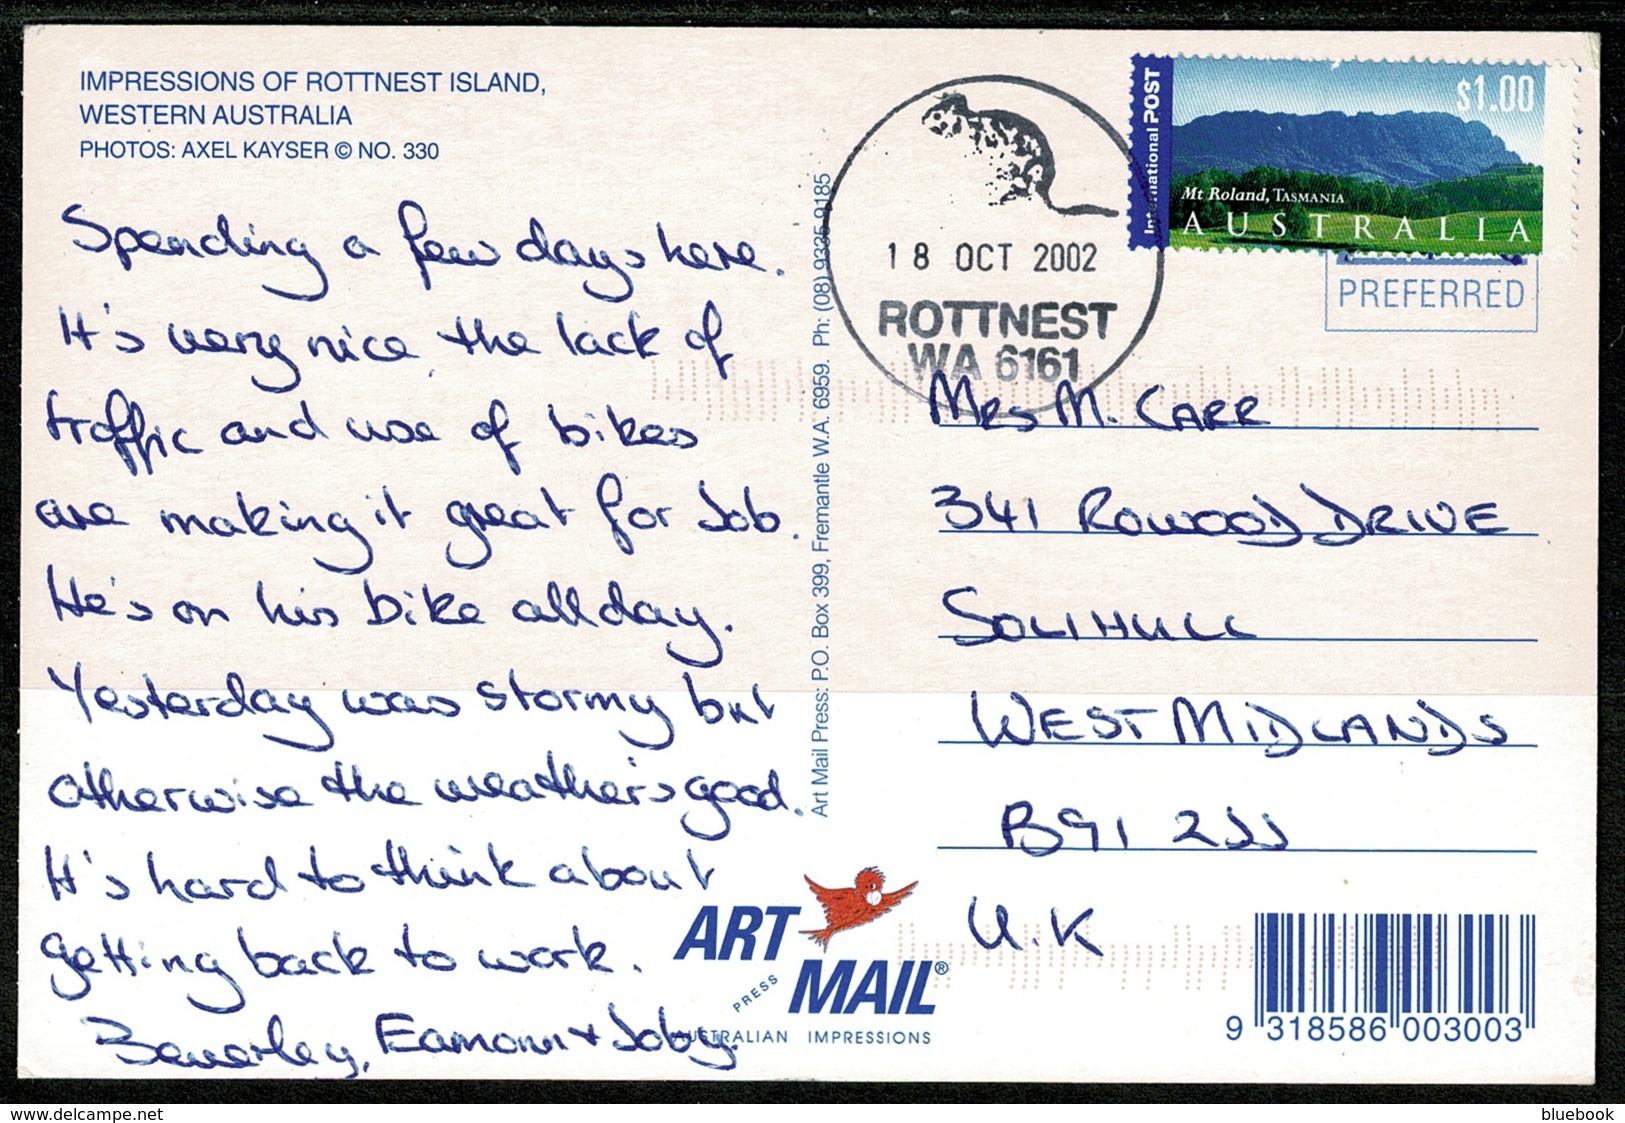 IMPRESSIONS OF ROTTNEST ISLAND,
WESTERN AUSTRALIA
PHOTOS: AXEL KAYSER © NO. 330
Spending a few days here.
It's very nice, the lack of
traffic and use of bikes
are making it great for Job.
He's on his bike all day.
Yesterday was stormy but
otherwise the weather's good.
It's hard to think about
getting back to work.
Beverley, Eamonn + Joby.
Art Mail Press: P.O. Box 399, Fremantle W.A. 6959. Ph: (08) 9335 9185
18 OCT 2002
ROTTNEST
WA 6161
International POST
$1.00
Mt Roland, TASMANIA
AUSTRALIA
PREFERRED
MRS M. CARR
341 ROWOOD DRIVE
SOLIHULL
WEST MIDLANDS
B91 2JJ
U.K
ART
PRESS
MAIL®
AUSTRALIAN IMPRESSIONS
9 318586 003003
delcampe.net
bluebook